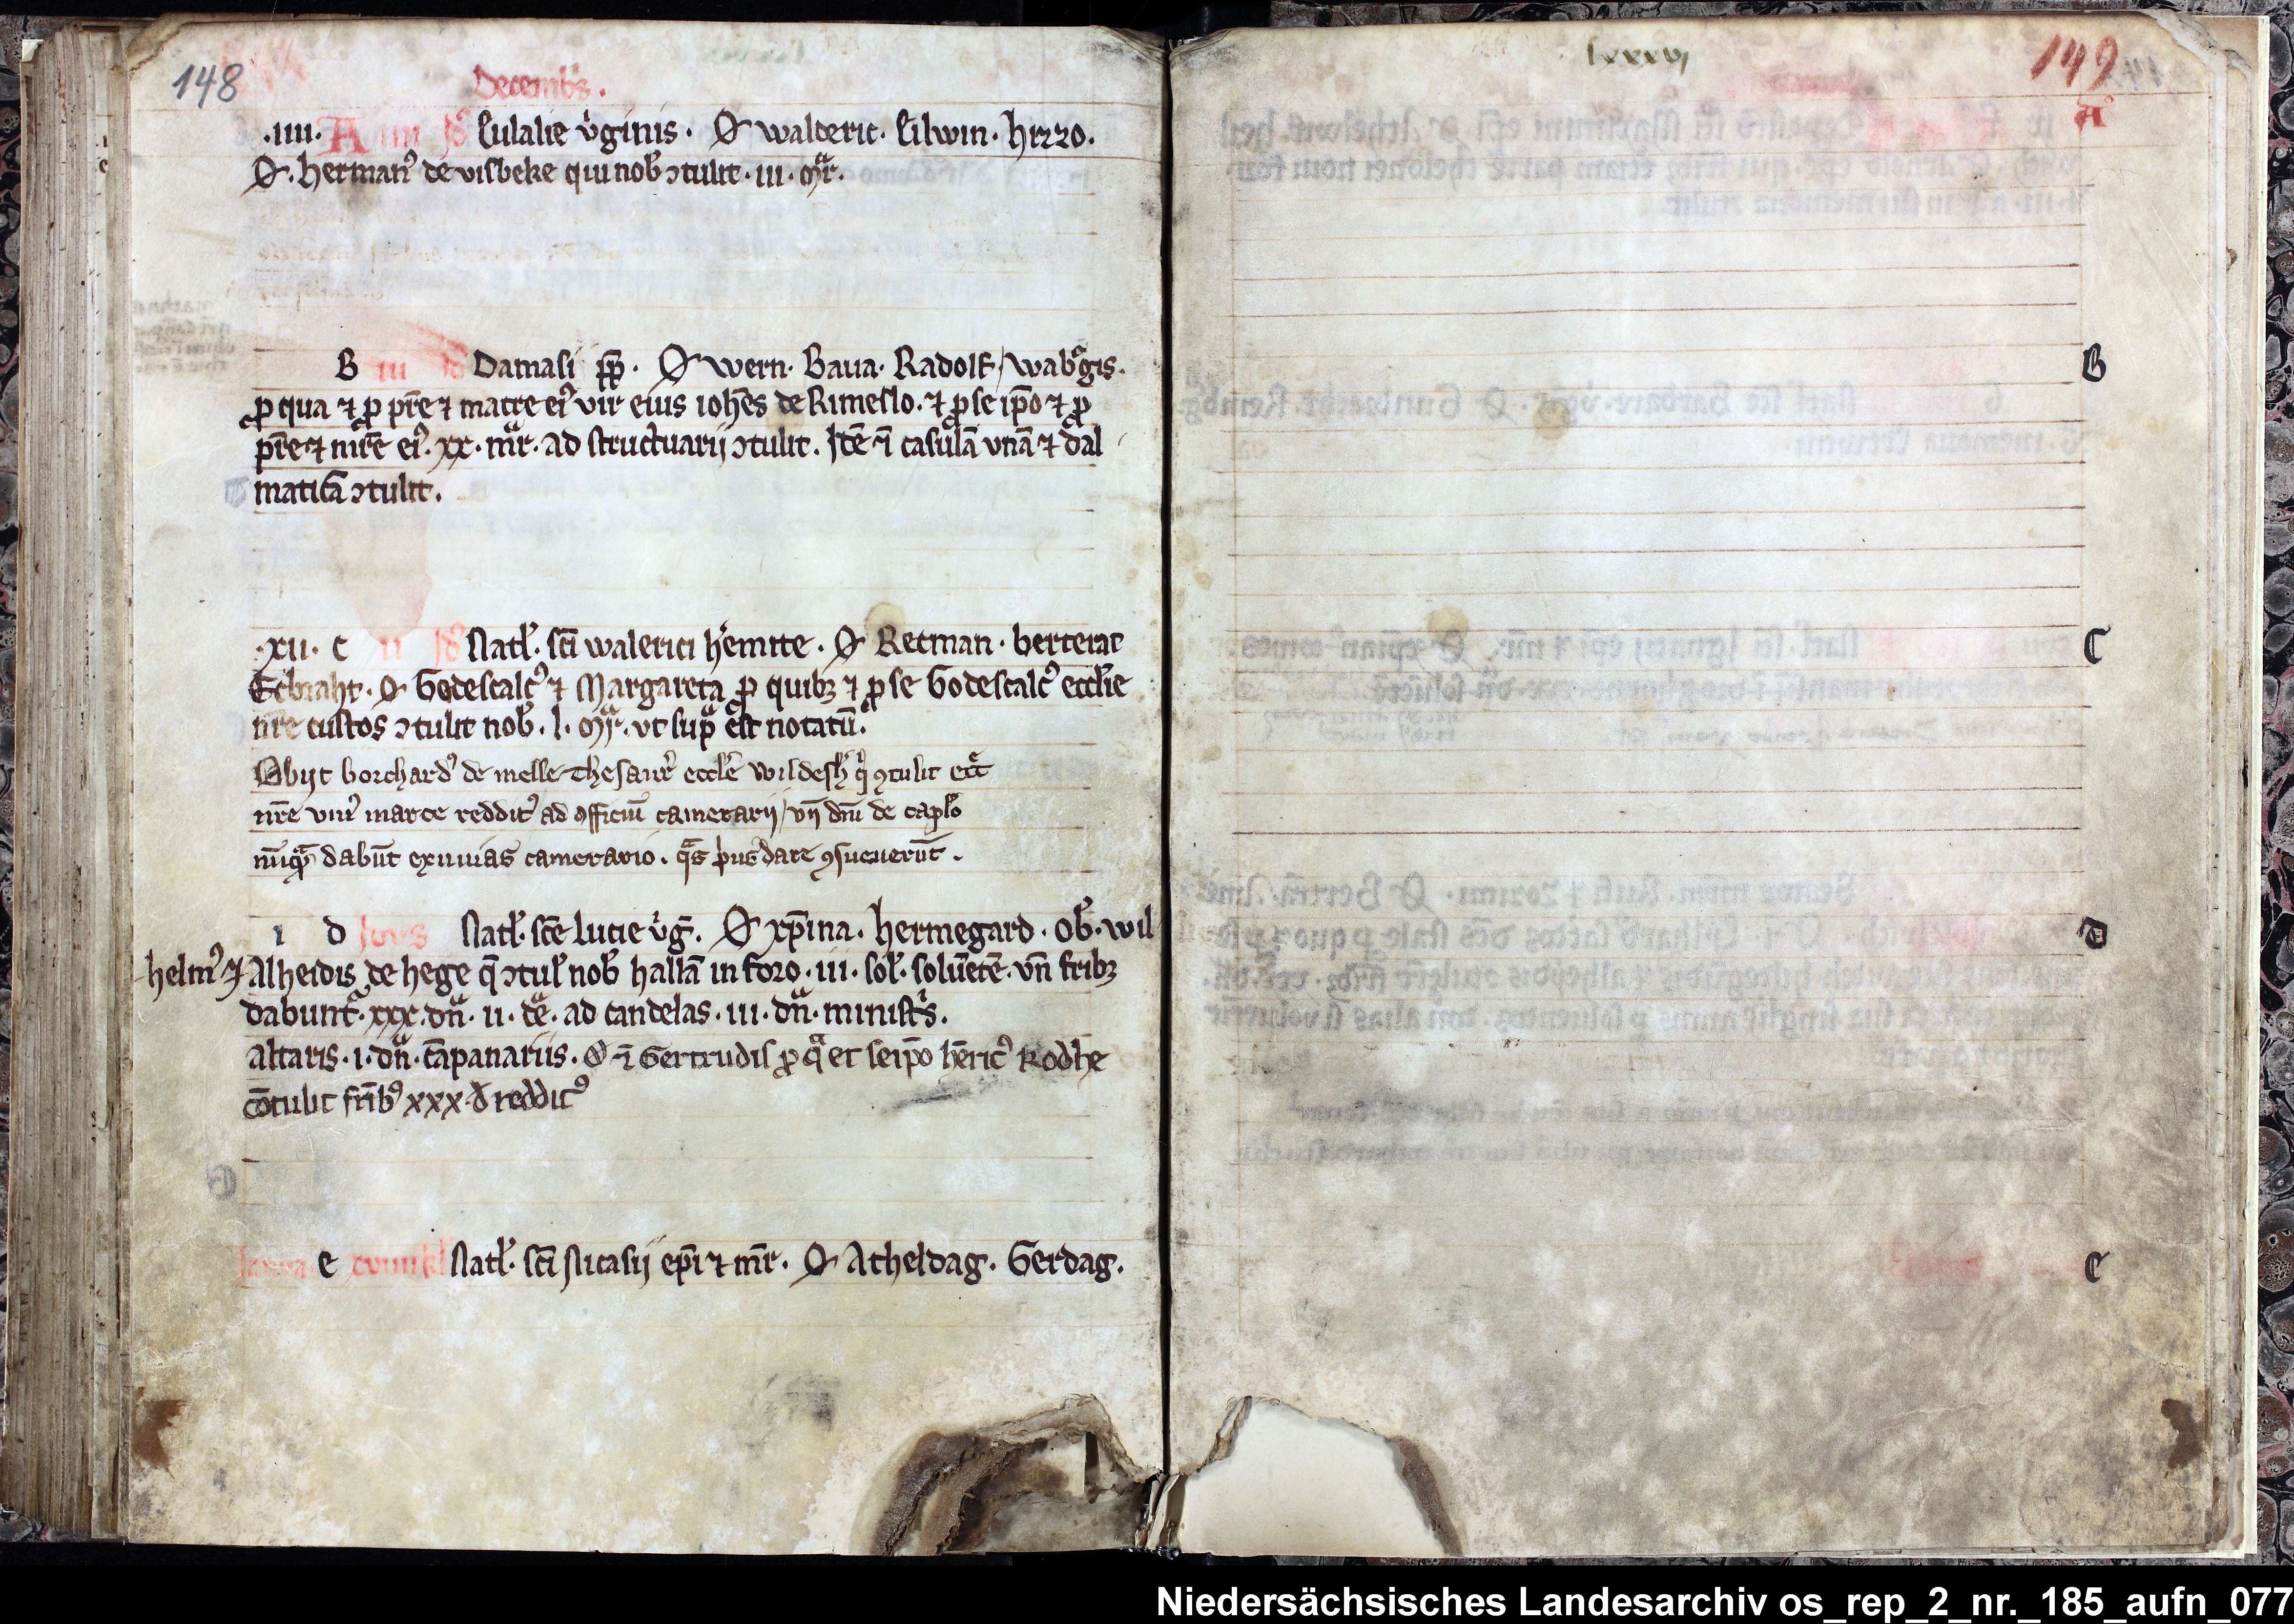 148
Decembris.
.iiii. A iiii Id' Eulalie v'ginis. O' walteric. Eilwin. hizzo.
O'. herman' de visbeke qui nob' ↄtulit. iii. mr.
B iii Id' Damasi pp. O' wern. Baua. Radolf / wab'gis.
p qua ⁊ p pre ⁊ matre ei' vir eius ioh'es de Rimeslo. ⁊ p se ipo ⁊ p
pre ⁊ mre ei'. xx. mr. ad structuarij ↄtulit. Ite ⁊ casulā vnā ⁊ dal
maticā ↄtulit.
.xii. c ii Id' Natl'. sci walerici h'emite. O' Retman. berterat
Ecbraht. O' Godescalc' ⁊ Margareta p quibȝ ⁊ p se Godescalc' eccl'ie
nr̄e custos ↄtulit nob'. l. mr. vt sup est notatū.
Obijt borchard' de melle thesaur' eccl'e wildesh' q' ꝯtulit
nr̄e vni' marce reddit' ad officiū camerarij / vn̄ dn̄i de caplo
nūq dabūt exuuias camerario. q's p'us dare ꝯsueuerūt.
i d Idus Natl'. sce Lucie v'g. O' xp̄ina. hermegard. Ob'. wil
helm' ⁊ Alheidis de hege q̄ ↄtul' nob' hallā in foro. iii. sol'. solūetē. vn̄ fribȝ
dabunt'. xxx. dn̄. ii. dē. ad candelas. iii. dn̄. minist's.
altaris. i. dn̄. cāpanariis. O' ⁊ Gertrudis p q̄ et seipo hēric' Rodhe
cōtulit frib' xxx. d reddit'
e xviiii kl Natl'. sci Nicasij ep̄i ⁊ mr̄. O' Atheldag. Gerdag.
lxxxvi
149
A
B
C
D
E
Niedersächsisches Landesarchiv os_rep_2_nr._185_aufn_077